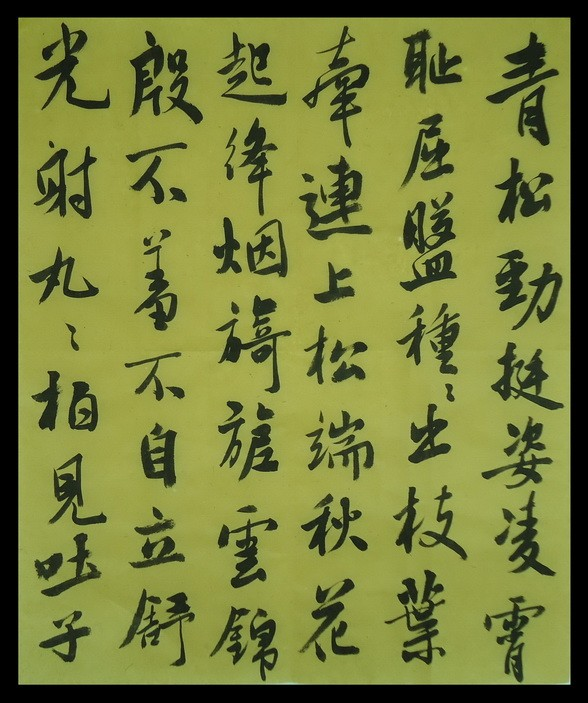 青松勁挺姿凌霄
耻屈盤種〻出枝葉
牽連上松端秋花
起絳烟旖旎雲錦
殷不羞不自立舒
光射丸〻柏見吐子